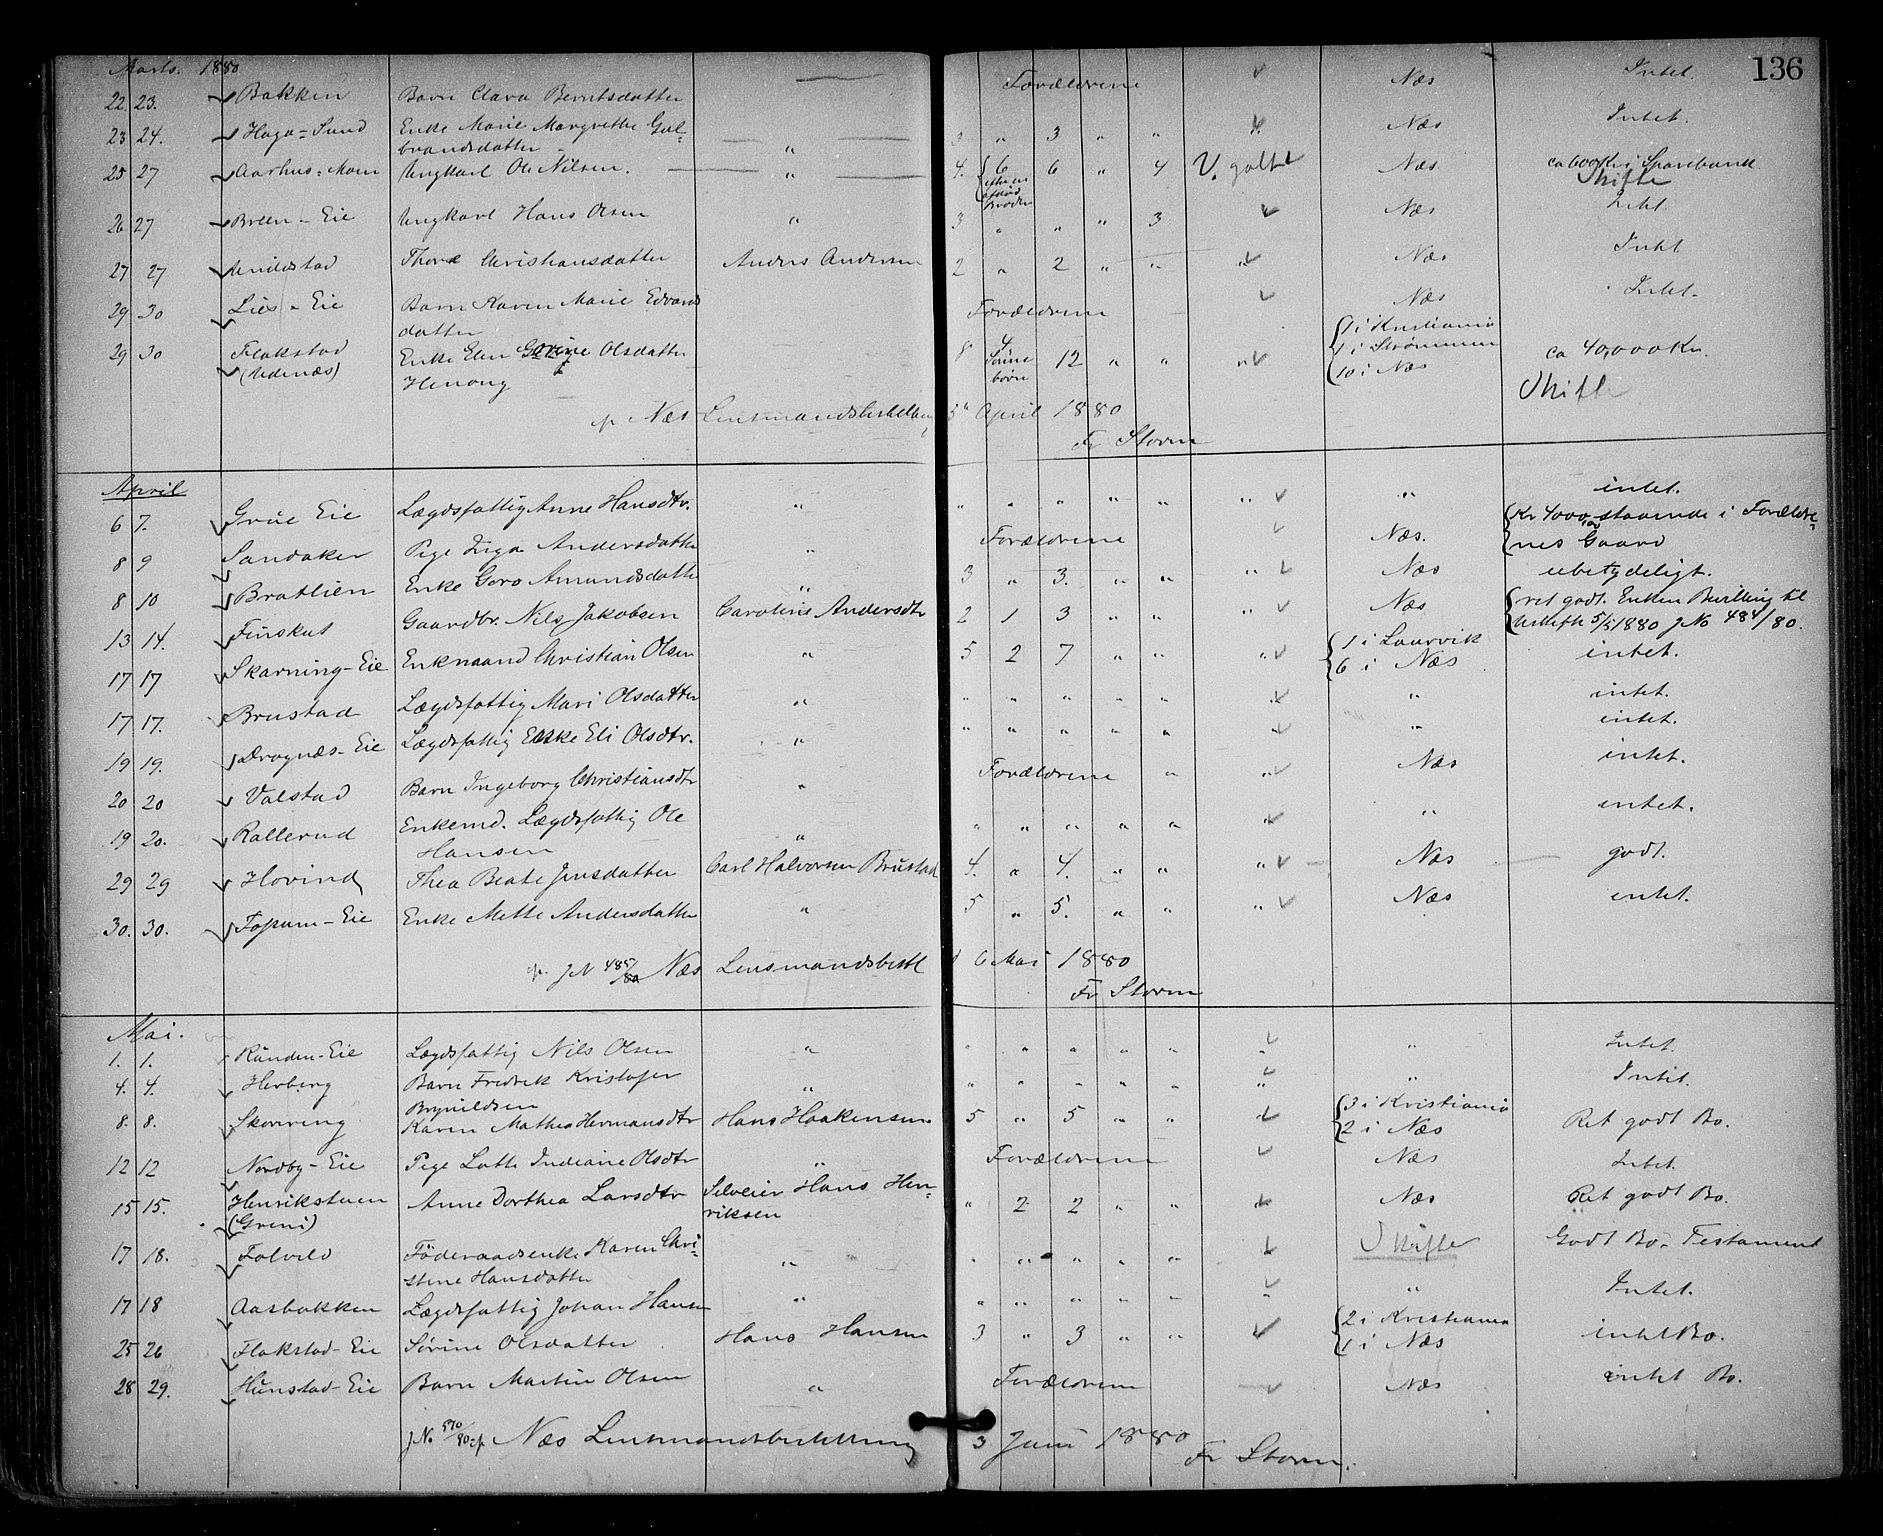 136
Marts. 1880
22. 23. Bakken Barn Clara Berntsdatter Forældrene Næs Intet.
23 24. Haga-Sund Enke Marie Margrethe Gul-
brandsdatter " 3 " 3 " " Næs Intet.
25 27 Aarhus-Moen Ungkarl Ole Nilsen. " 4. 6 6 " 4 Næs ca 600 Kr i Sparebank
Broder Skifte
26 27 Breen-Eie Ungkarl Hans Olsen " 3 " " " 3 Næs Intet
27 27 Thora Christiansdatter Anders Andersen 2 " 2 " " " Næs Intet
29 30 Lies-Eie Barn Karen Marie Edvards
datter Forældrene Næs Intet.
29 30 Flakstad
(Udenæs) Enke Elen Olsdatter
8 4
Særine
børn 12 " " " 1 i Kristiania
1 i Strømmen
10 i Næs ca 40,000 Kr.
Skifte
Næs Lensmandsbestilling 5 April 1880
Fr Storm
April
6 7. Grue Eie Lægdsfattig Anne Hansdtr. " " " " " " " " intet.
8 9 Sandaker Pige Inga Andersdatter " Forældrene Næs. Kr 4000,00 staaende i Forældre-
nes Gaard
8 10 Bratlien Enke Goro Amundsdatter " 3 " 3. " " " Næs ubetydeligt.
13 14. Finskut Gaardbr. Nils Jakobsen Caroline Andersdtr 2 1 3 " " " Næs ret godt. Enken Bevilling til
Uskifte 5/5 1880 J No 484/80.
17 17 Skarning-Eie Enkemand Christian Olsen " 5 2 7 " " " 1 i Laurvik
6 i Næs intet.
17 17. Brustad Lægdsfattig Mari Olsdatter " " " " " " " " intet.
19 19. Dragnæs-Eie Lægdsfattig Enke Eli Olsdtr. " " " " " " " " intet.
20 20 Valstad Barn Ingeborg Christiansdtr " Forældrene " " Næs intet.
19 20. Rallerud Enkemd. Lægdsfattig Ole
Hansen " " " " " " " " intet.
29 29 Hovind Thea Beate Jensdatter Carl Halvorsen Brustad 4. " 4. " " " Næs godt.
30. 30. Eie Enke Mette Andersdatter " 5 " 5. " " " Næs intet.
J N 485/80 Næs Lensmandsbestl 6 Mai 1880
Fr Storm
Mai.
1. 1. Runden-Eie Lægdsfattig Nils Olsen " " " " " " " " Intet
4. 4. Herberg Barn Fredrik Kristofer
Brynildsen " " " " " " " " Intet.
8. 8. Skovring Karen Mathea Hermansdtr Hans Haakensen 5 " 5 " " " 3 i Kristiania
2 i Næs Ret godt Bo.
12 12 Nordby-Eie Pige Lotte Indiane Olsdtr " Forældrene Næs Intet.
15 15. Henrikstuen
(Greni) Anne Dorthea Larsdtr Selveier Hans Hen-
riksen " 2 2 " " " Næs Ret godt Bo.
17 18. Folvild Föderaadsenke Karen Chri-
stine Hansdatter " " " " " " Skifte Godt Bo. Testament
17 18 Aasbakken Lægdsfattig Johan Hansen " " " " " " " " Intet.
25 26 Flakstad-Eie Sørine Olsdatter Hans Hansen 3 " 3 " " 2 i Kristiania
1 i Næs intet Bo.
28 29. Hunstad-Eie Barn Martin Olsen " Forældrene Næs intet Bo.
J No. 570/80 Næs Lensmandsbestilling 3 Juni 1880
Fr Storm.